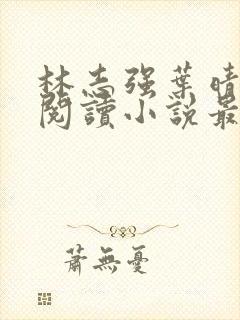 林志强葉晴
閱讀小説最
蕭無憂